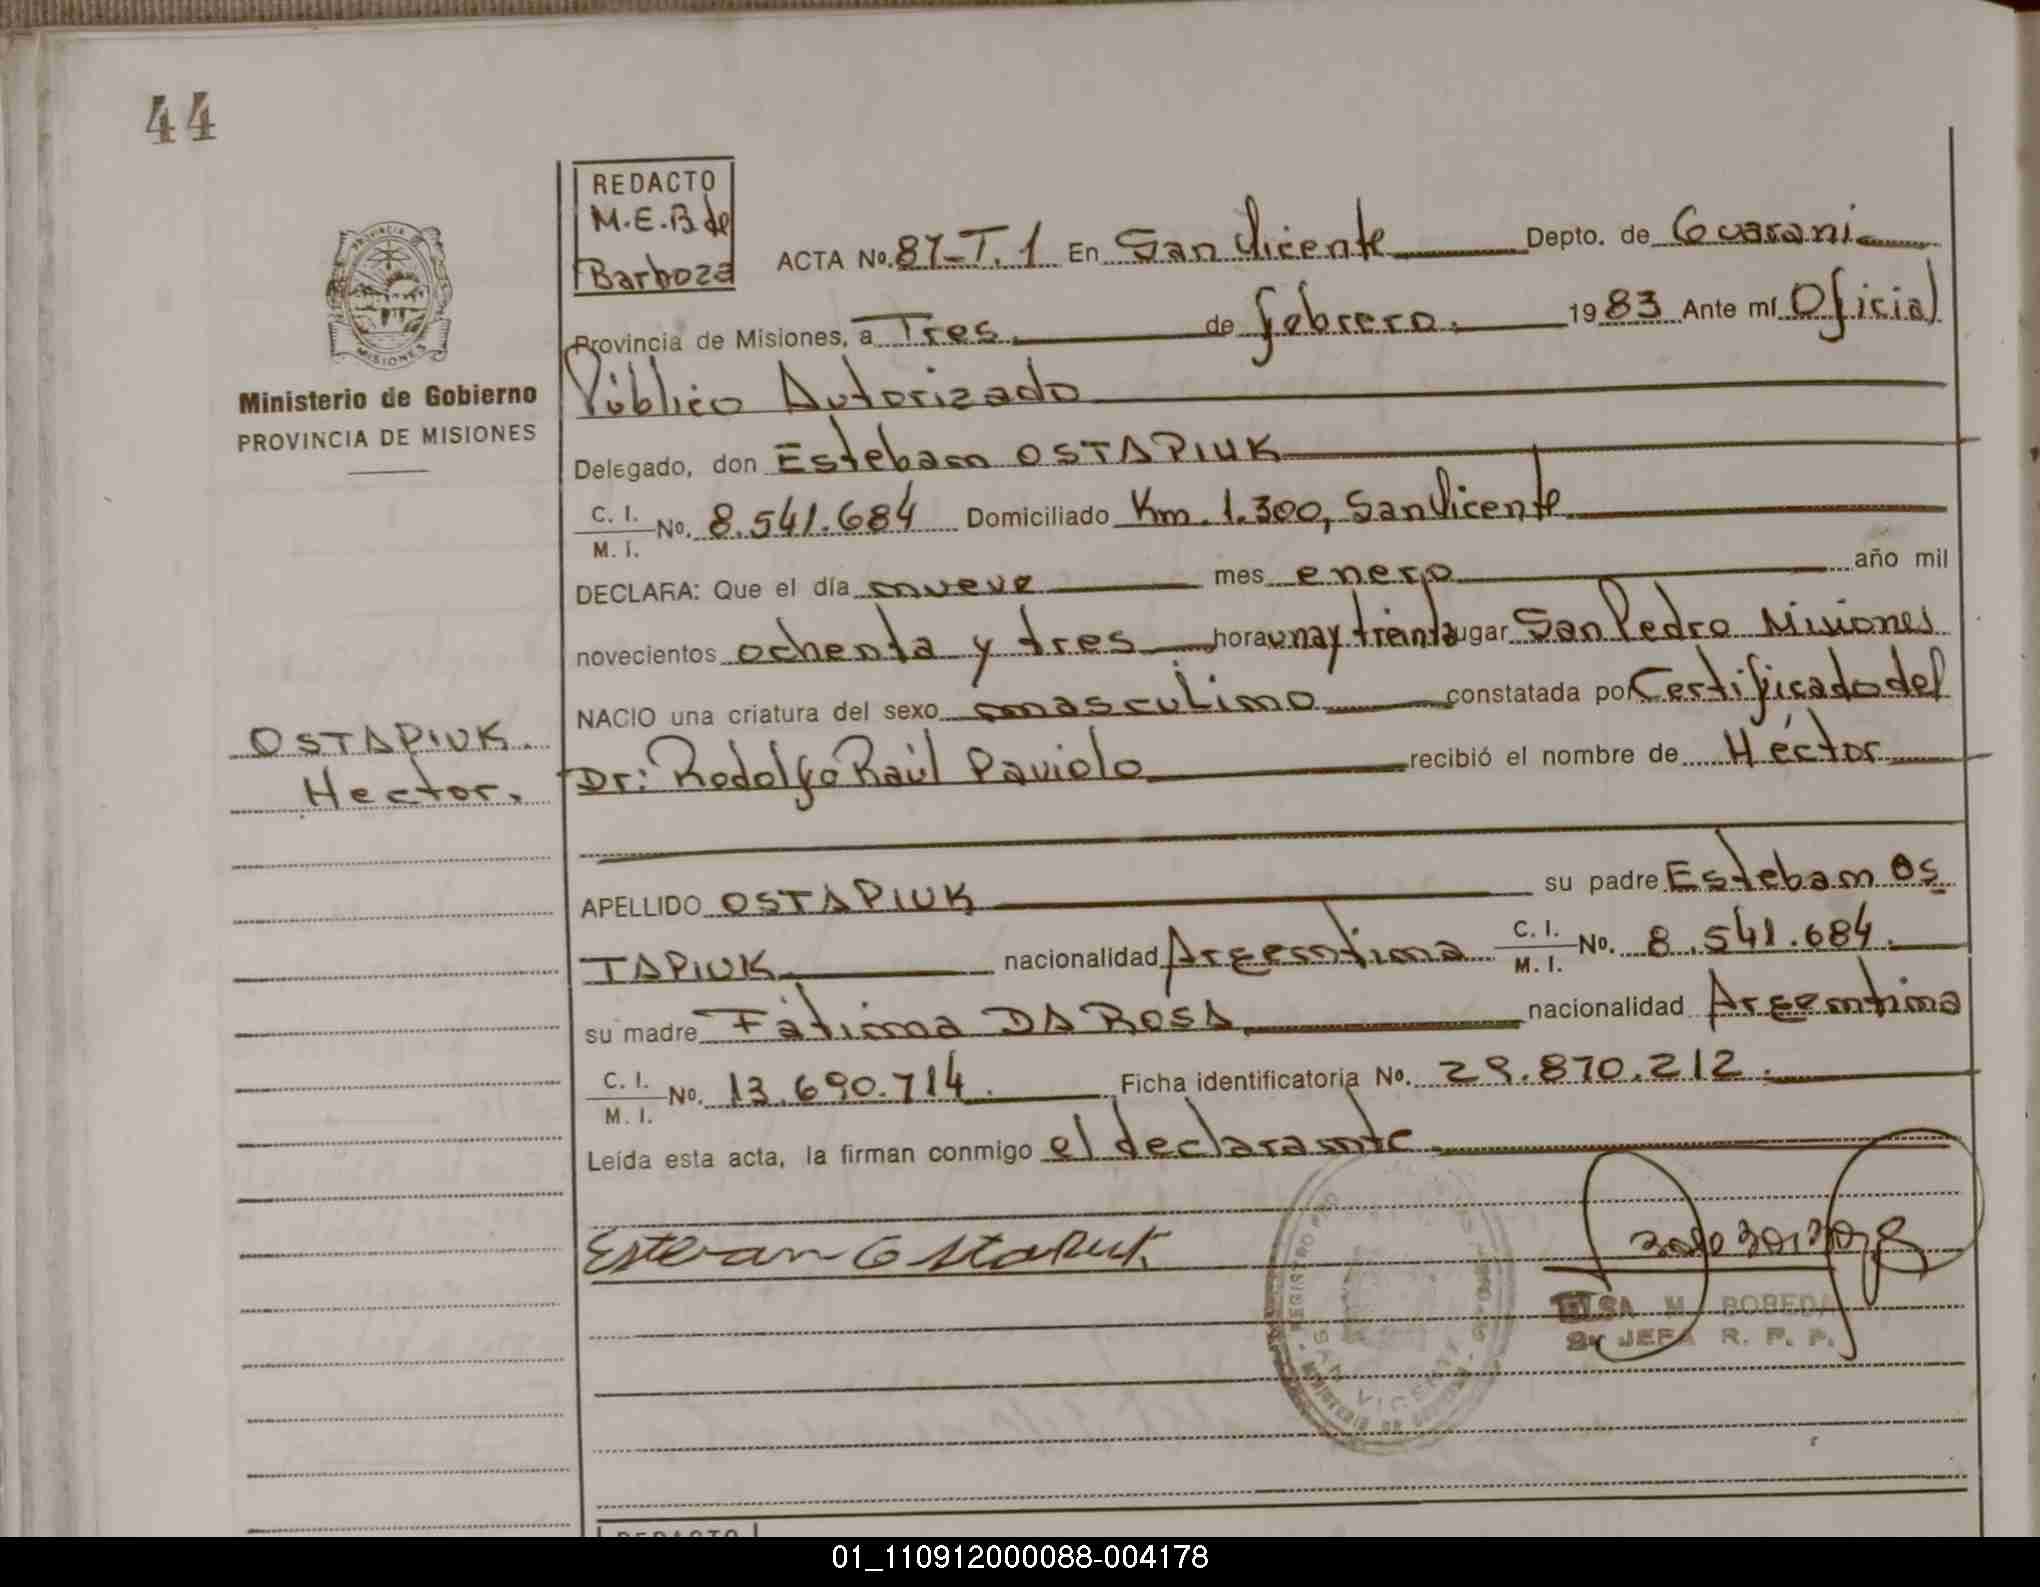 44
REDACTO
M.E.B de
Barboza
ACTA No. 87-T.1 En San Vicente Depto. de Guarani
Provincia de Misiones, a Tres de febrero. 1983 Ante mí Oficial
Público Autorizado
PROVINCIA
MISIONES
Ministerio de Gobierno
PROVINCIA DE MISIONES
Delegado, don Estebam OSTAPIUK
C. I.
M. I. No. 8.541.684 Domiciliado Km. 1.300, San Vicente
DECLARA: Que el día nueve mes enero año mil
novecientos ochenta y tres hora una y treinta lugar San Pedro Misiones
NACIO una criatura del sexo masculino constatada por Certificado del
Dr: Rodolfo Raúl Paviolo recibió el nombre de Héctor
OSTAPIUK.
Hector.
APELLIDO OSTAPIUK su padre Estebam OS
TAPIUK nacionalidad Argentina C. I.
M. I. No. 8.541.684.
su madre Fátima DA ROSA nacionalidad Argentina
C. I.
M. I. No. 13.690.714. Ficha identificatoria No. 29.870.212.
Leída esta acta, la firman conmigo el declarante
Estevan Ostapiuk
ELSA M. BOBEDA
JEFA R. P. P.
SAN VICENTE
REDACTO
01_110912000088-004178